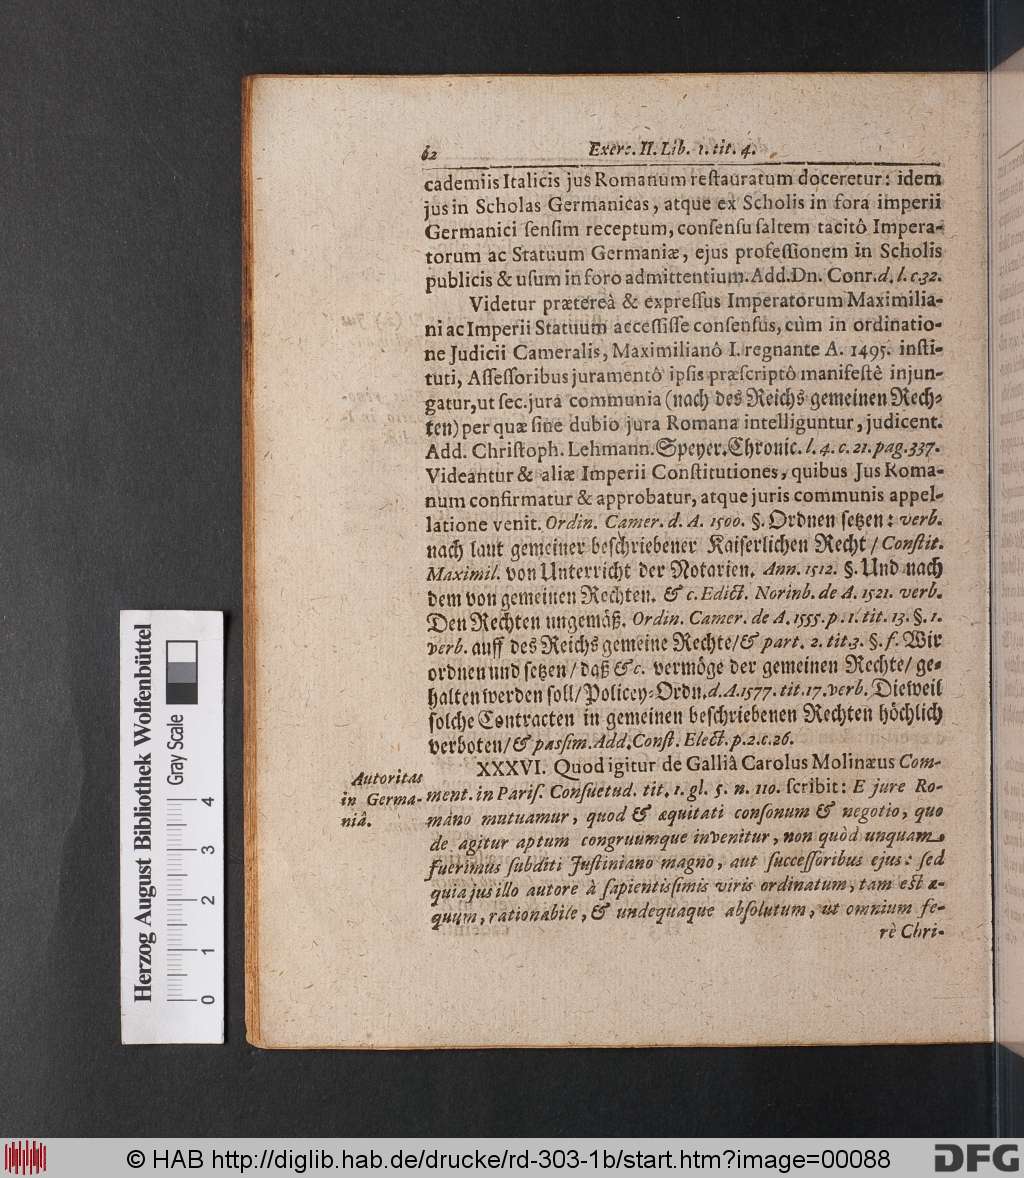 62 Exerc. II. Lib. 1. tit. 4.
cademiis Italicis jus Romanum reſtauratum doceretur: idem
jus in Scholas Germanicas, atque ex Scholis in fora imperii
Germanici ſenſim receptum, conſenſu ſaltem tacitô Impera-
torum ac Statuum Germaniæ, ejus profeſſionem in Scholis
publicis & uſum in foro admittentium. Add. Dn. Conr. d. l. c. 32.
Videtur prætereà & expreſſus Imperatorum Maximilia-
ni ac Imperii Statuum acceſſiſſe conſenſus, cùm in ordinatio-
ne Judicii Cameralis, Maximilianô I. regnante A. 1495. inſti-
tuti, Aſſeſſoribus juramentô ipſis præſcriptô manifeſtè injun-
gatur, ut ſec. jura communia (nach des Reichs gemeinen Rech-
ten) per quæ ſine dubio jura Romana intelliguntur, judicent.
Add. Chriſtoph. Lehmann. Speyer. Chronic. l. 4. c. 21. pag. 337.
Videantur & aliæ Imperii Conſtitutiones, quibus Jus Roma-
num confirmatur & approbatur, atque juris communis appel-
latione venit. Ordin. Camer. d. A. 1500. §. Ordnen ſetzen: verb.
nach laut gemeiner beſchriebener Kaiſerlichen Recht / Conſtit.
Maximil. von Unterricht der Notarien. Ann. 1512. §. Und nach
dem von gemeinen Rechten. & c. Edict. Norinb. de A. 1521. verb.
Den Rechten ungemäß. Ordin. Camer. de A. 1555. p. 1. tit. 13. §. 1.
verb. auff des Reichs gemeine Rechte / & part. 2. tit. 3. §. f. Wir
ordnen und ſetzen / daß & c. vermöge der gemeinen Rechte / ge-
halten werden ſoll / Policey-Ordn. d. A. 1577. tit. 17. verb. Dieweil
ſolche Contracten in gemeinen beſchriebenen Rechten höchlich
verboten / & paſſim. Add. Conſt. Elect. p. 2. c. 26.
Autoritas
in Germa-
niâ.
XXXVI. Quod igitur de Galliâ Carolus Molinæus Com-
ment. in Pariſ. Conſuetud. tit. 1. gl. 5. n. 110. ſcribit: E jure Ro-
mano mutuamur, quod & æquitati conſonum & negotio, quo
de agitur aptum congruumque invenitur, non quòd unquam
fuerimus ſubditi Juſtiniano magno, aut ſucceſſoribus ejus: ſed
quia jus illo autore à ſapientiſſimis viris ordinatum, tam eſt æ-
quum, rationabile, & undequaque abſolutum, ut omnium fe-
rè Chri-
Herzog August Bibliothek Wolfenbüttel
Gray Scale
0 1 2 3 4
© HAB http://diglib.hab.de/drucke/rd-303-1b/start.htm?image=00088
DFG